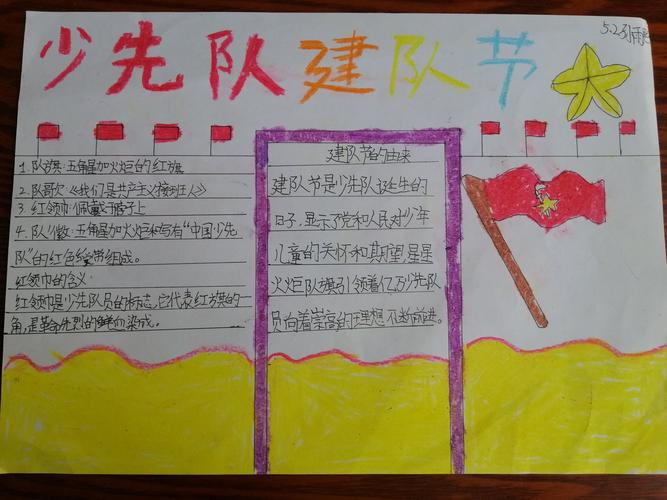 5.2 孙雨
少先队建队节
1.队旗:五角星加火炬的红旗
2.队歌:《我们是共产主义接班人》
3.红领巾:佩戴于脖子上
4.队徽:五角星加火炬和写有“中国少先
队”的红色绶带组成。
红领巾的含义:
红领巾是少先队员的标志,它代表红旗的一
角,是革命先烈的鲜血染成。
建队节的由来
建队节是少先队诞生的
日子,显示了党和人民对少年
儿童的关怀和期望,星星
火炬队旗引领着亿万少先队
员向着崇高的理想不断前进。